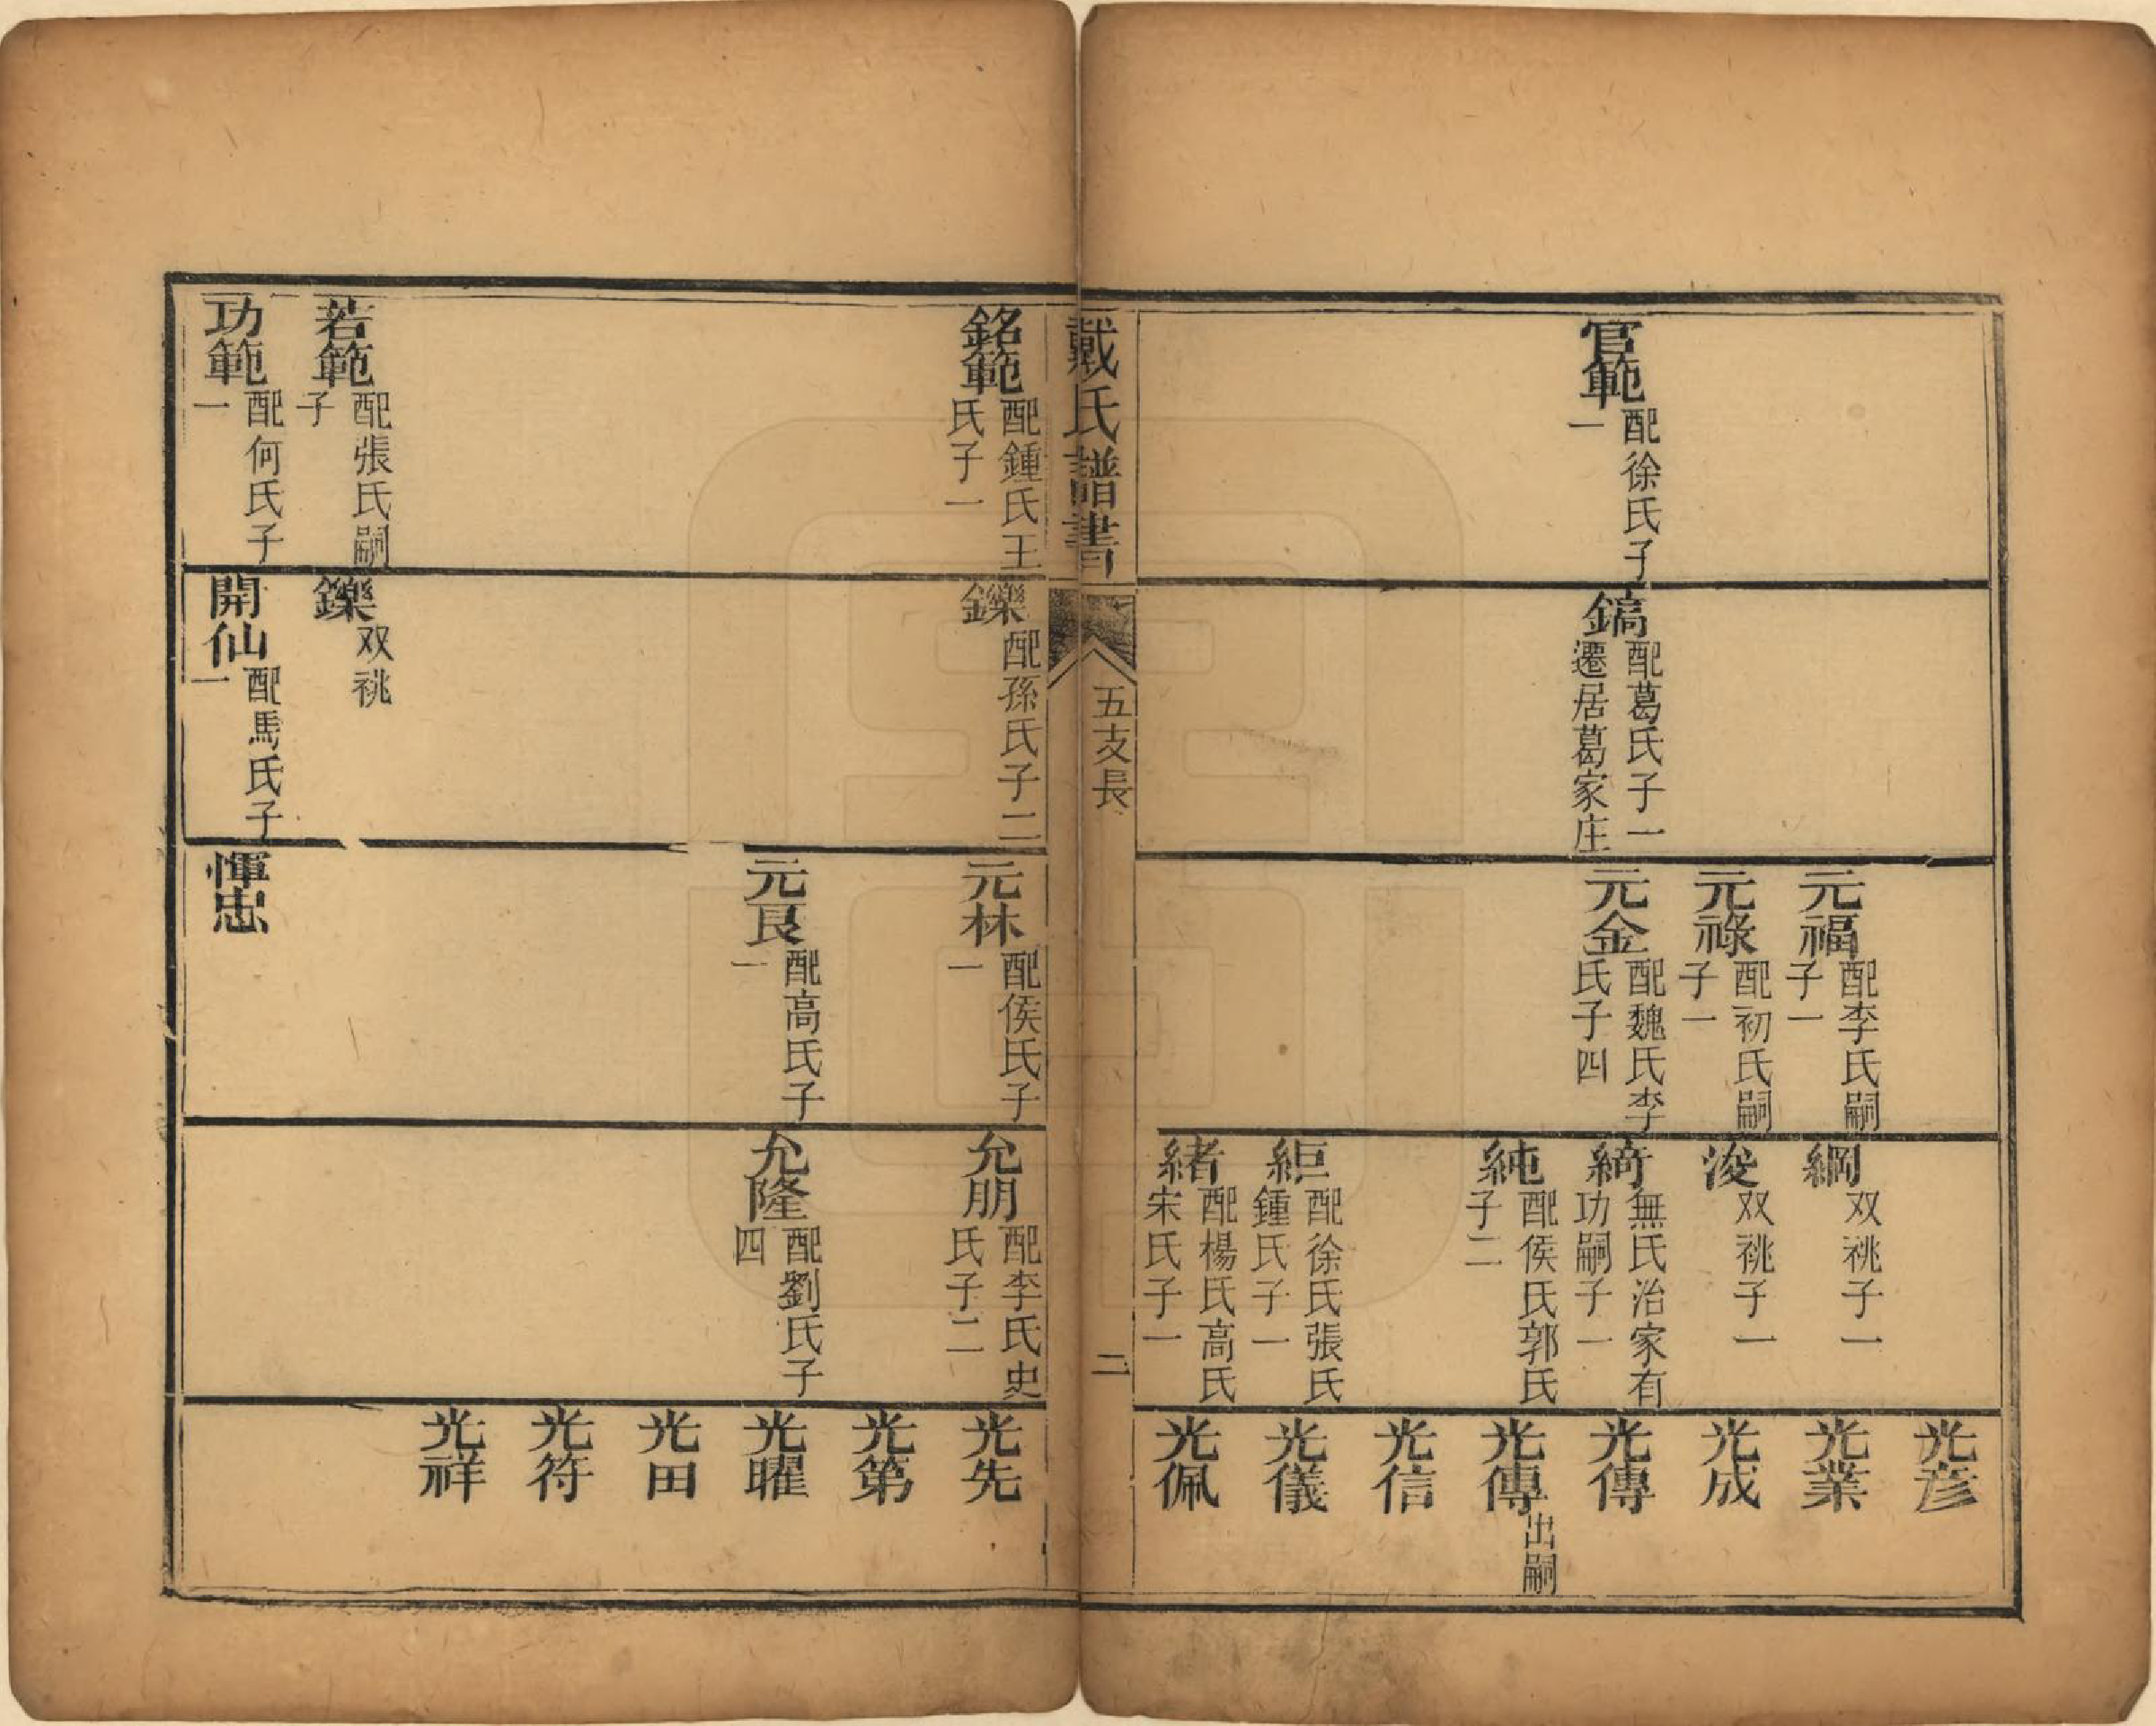 官範 配徐氏子一
鎬 配葛氏子一遷居葛家庄
元福 配李氏嗣子一
元祿 配初氏嗣子一
元金 配魏氏李氏子四
綱 双祧子一
浚 双祧子一
綺 無氏治家有功嗣子一
純 配侯氏郭氏子二
緖 配徐氏張氏鍾氏子一
緒 配楊氏高氏宋氏子一
光彦
光業
光成
光傳
光傳 出嗣
光信
光儀
光佩
戴氏譜書
五支長
二
銘範 配鍾氏王氏子一
若範 配張氏嗣子
功範 配何氏子一
鑠 配孫氏子二
鑠 双祧
開仙 配馬氏子一
元林 配侯氏子一
元良 配高氏子一
惲忠
允朋 配李氏史氏子二
允隆 配劉氏子四
光先
光第
光曜
光田
光符
光祥